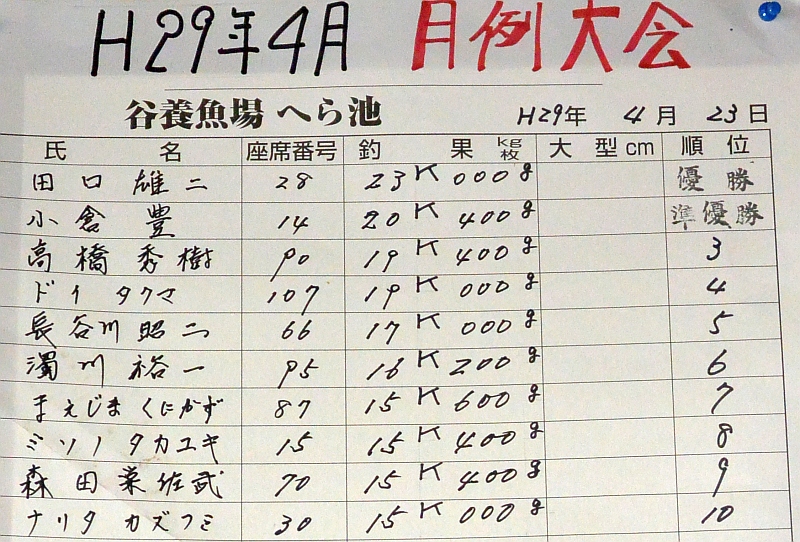 H29年4月 月例大会
谷養魚場 へら池 H29年 4月 23日
氏 名 座席番号 釣 果 kg枚 大 型 cm 順 位
田口 雄二 28 23K 000g 優勝
小倉 豊 14 20K 400g 準優勝
高橋 秀樹 90 19K 400g 3
ドイ タクマ 107 19K 000g 4
長谷川 昭二 66 17K 000g 5
濁川 裕一 95 16K 200g 6
まえじま くにかず 87 15K 600g 7
ミソノ タカユキ 15 15K 400g 8
森田 佐武 70 15K 400g 9
ナリタ カズフミ 30 15K 000g 10